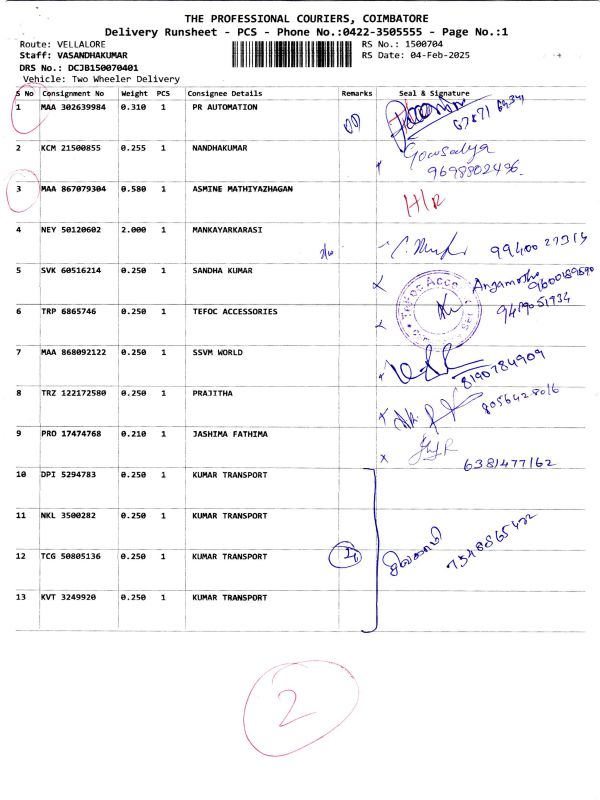 THE PROFESSIONAL COURIERS, COIMBATORE
Delivery Runsheet - PCS - Phone No.:0422-3505555 - Page No.:1
Route: VELLALORE RS No.: 1500704
Staff: VASANDHAKUMAR RS Date: 04-Feb-2025
DRS No.: DCJB150070401
Vehicle: Two Wheeler Delivery
S No Consignment No Weight PCS Consignee Details Remarks Seal & Signature
1 MAA 302639984 0.310 1 PR AUTOMATION
2 KCM 21500855 0.255 1 NANDHAKUMAR Gowsalya
9698802496
3 MAA 867079304 0.580 1 ASMINE MATHIYAZHAGAN H/R
4 NEY 50120602 2.000 1 MANKAYARKARASI
5 SVK 60516214 0.250 1 SANDHA KUMAR
6 TRP 6865746 0.250 1 TEFOC ACCESSORIES
7 MAA 868092122 0.250 1 SSVM WORLD 8190784909
8 TRZ 122172580 0.250 1 PRAJITHA 8056428016
9 PRO 17474768 0.210 1 JASHIMA FATHIMA 6381477162
10 DPI 5294783 0.250 1 KUMAR TRANSPORT
11 NKL 3500282 0.250 1 KUMAR TRANSPORT
12 TCG 50805136 0.250 1 KUMAR TRANSPORT
13 KVT 3249920 0.250 1 KUMAR TRANSPORT
2